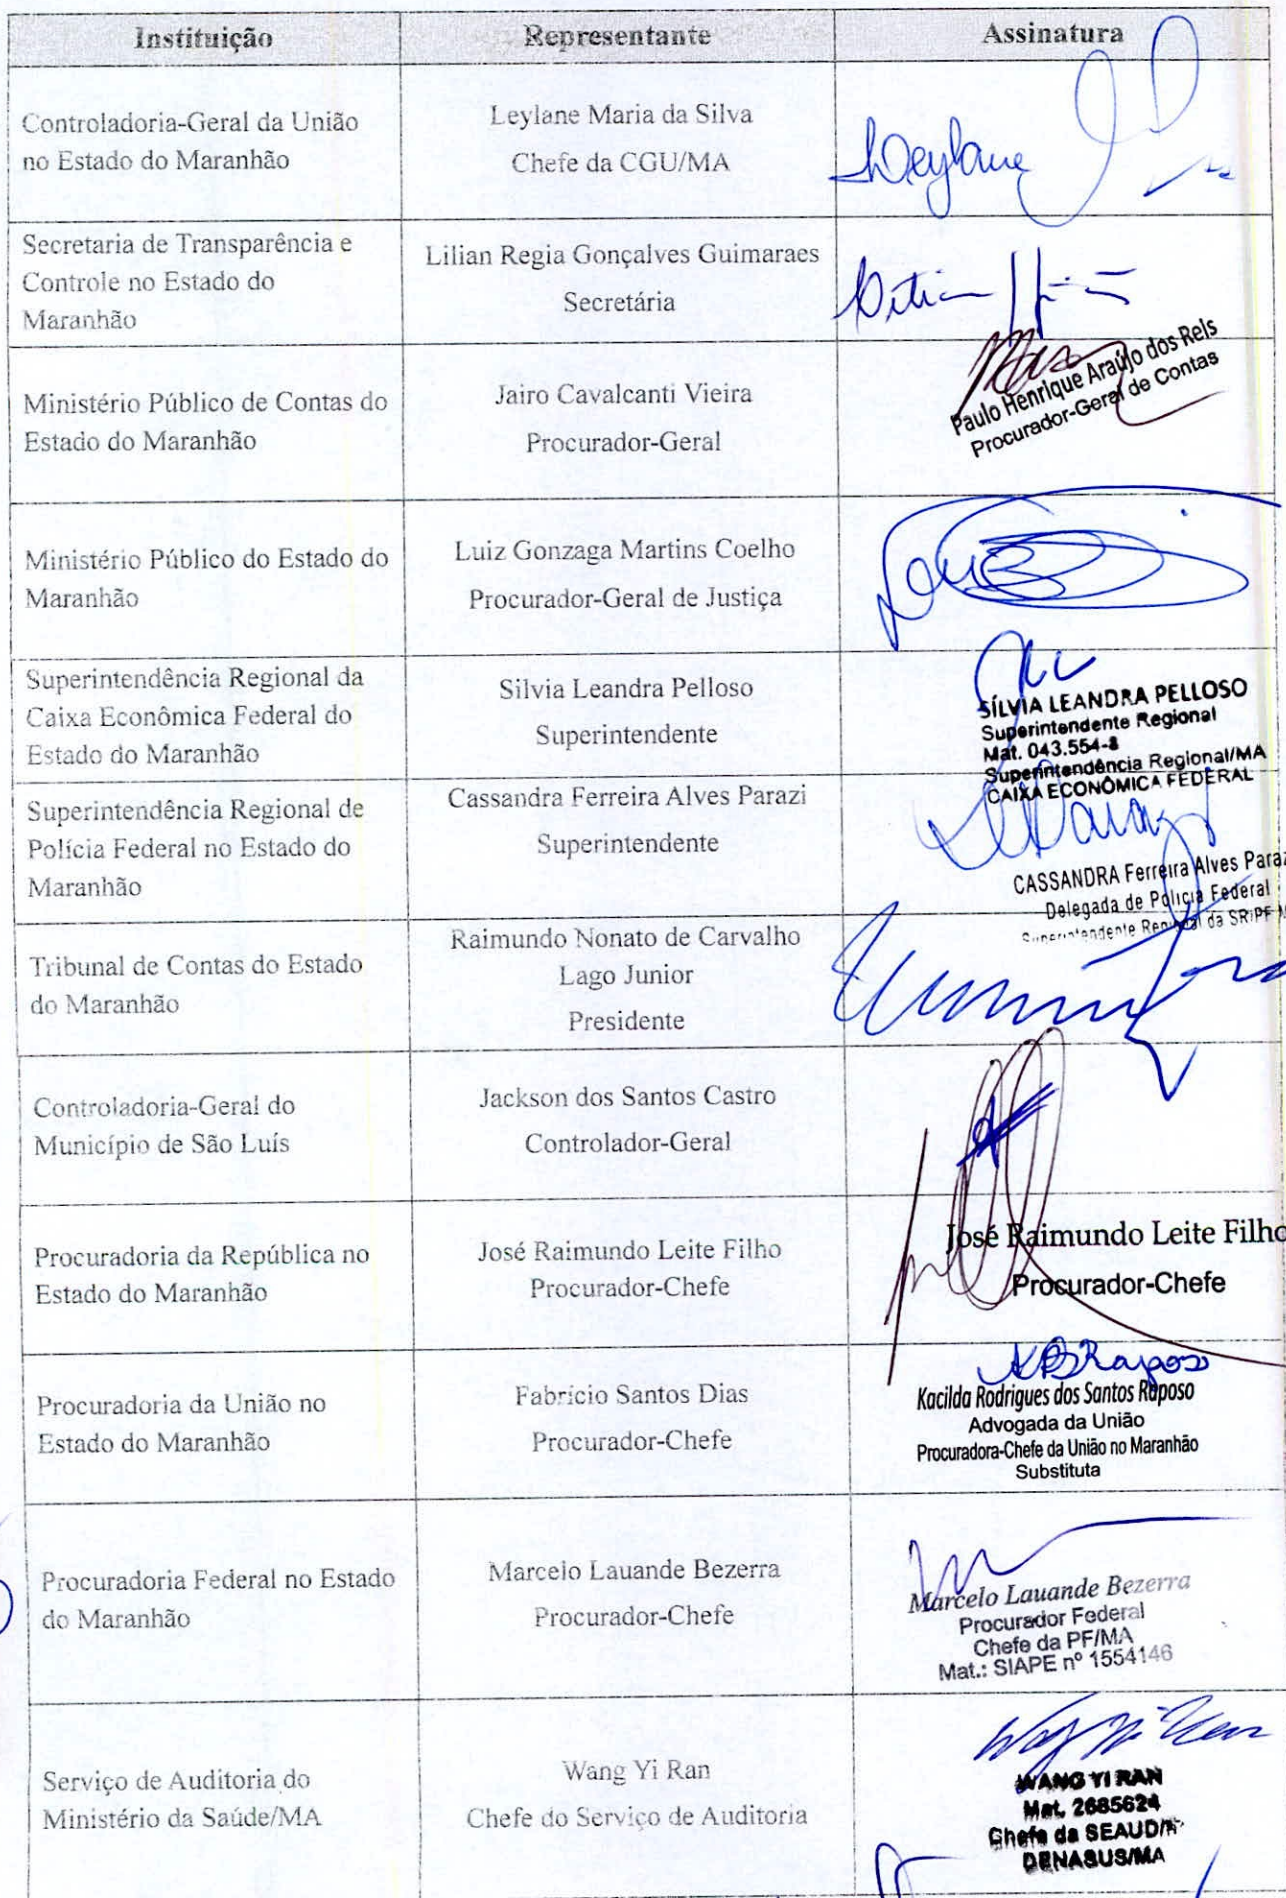 Instituição
Representante
Assinatura
Controladoria-Geral da União
no Estado do Maranhão
Leylane Maria da Silva
Chefe da CGU/MA
Leylane
Secretaria de Transparência e
Controle no Estado do
Maranhão
Lilian Regia Gonçalves Guimaraes
Secretária
Ministério Público de Contas do
Estado do Maranhão
Jairo Cavalcanti Vieira
Procurador-Geral
Paulo Henrique Araújo dos Reis
Procurador-Geral de Contas
Ministério Público do Estado do
Maranhão
Luiz Gonzaga Martins Coelho
Procurador-Geral de Justiça
Superintendência Regional da
Caixa Econômica Federal do
Estado do Maranhão
Silvia Leandra Pelloso
Superintendente
SÍLVIA LEANDRA PELLOSO
Superintendente Regional
Mat. 043.554-8
Superintendência Regional/MA
CAIXA ECONÔMICA FEDERAL
Superintendência Regional de
Polícia Federal no Estado do
Maranhão
Cassandra Ferreira Alves Parazi
Superintendente
CASSANDRA Ferreira Alves Paraz
Delegada de Polícia Federal
Superintendente Regional da SR/PF M
Tribunal de Contas do Estado
do Maranhão
Raimundo Nonato de Carvalho
Lago Junior
Presidente
Controladoria-Geral do
Município de São Luís
Jackson dos Santos Castro
Controlador-Geral
Procuradoria da República no
Estado do Maranhão
José Raimundo Leite Filho
Procurador-Chefe
José Raimundo Leite Filho
Procurador-Chefe
Procuradoria da União no
Estado do Maranhão
Fabrício Santos Dias
Procurador-Chefe
KRSRaposo
Kacilda Rodrigues dos Santos Raposo
Advogada da União
Procuradora-Chefe da União no Maranhão
Substituta
Procuradoria Federal no Estado
do Maranhão
Marcelo Lauande Bezerra
Procurador-Chefe
Marcelo Lauande Bezerra
Procurador Federal
Chefe da PF/MA
Mat.: SIAPE nº 1554146
Serviço de Auditoria do
Ministério da Saúde/MA
Wang Yi Ran
Chefe do Serviço de Auditoria
Wang Yi Ran
WANG YI RAN
Mat. 2685624
Chefe da SEAUD/
DENASUS/MA